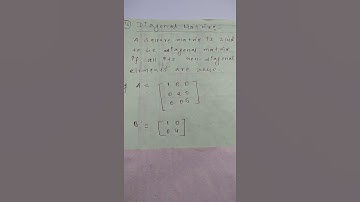 Diagonal Matrix
A square matrix is said
to be diagonal matrix
if all its non-diagonal
elements are zero.
A =
1 0 0
0
0 0
B = 1 0
0 4